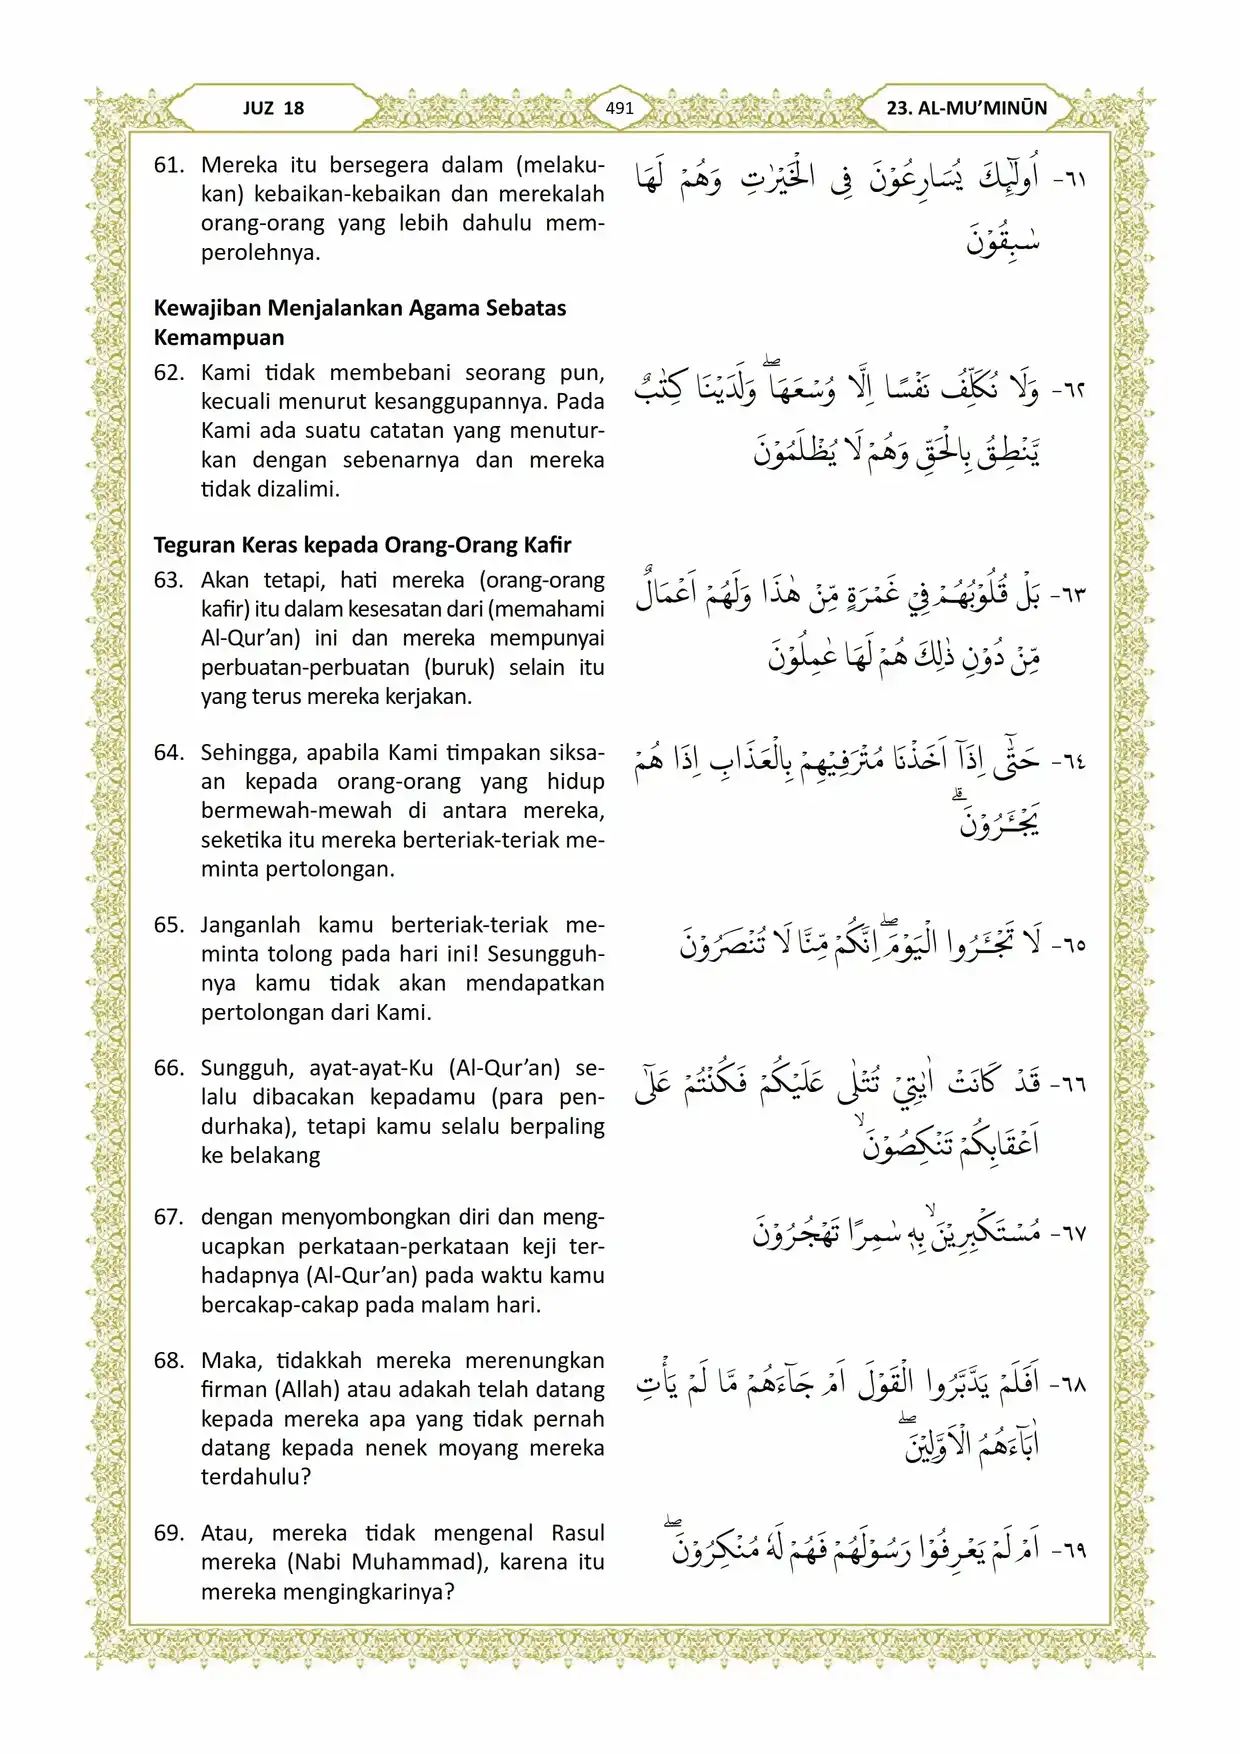 JUZ 18
491
23. AL-MU’MINŪN
61. Mereka itu bersegera dalam (melaku-
kan) kebaikan-kebaikan dan merekalah
orang-orang yang lebih dahulu mem-
perolehnya.
٦١- اُولٰۤىِٕكَ يُسَارِعُوْنَ فِى الْخَيْرٰتِ وَهُمْ لَهَا
سٰبِقُوْنَ
Kewajiban Menjalankan Agama Sebatas
Kemampuan
62. Kami tidak membebani seorang pun,
kecuali menurut kesanggupannya. Pada
Kami ada suatu catatan yang menutur-
kan dengan sebenarnya dan mereka
tidak dizalimi.
٦٢- وَلَا نُكَلِّفُ نَفْسًا اِلَّا وُسْعَهَاۖ وَلَدَيْنَا كِتٰبٌ
يَّنْطِقُ بِالْحَقِّ وَهُمْ لَا يُظْلَمُوْنَ
Teguran Keras kepada Orang-Orang Kafir
63. Akan tetapi, hati mereka (orang-orang
kafir) itu dalam kesesatan dari (memahami
Al-Qur’an) ini dan mereka mempunyai
perbuatan-perbuatan (buruk) selain itu
yang terus mereka kerjakan.
٦٣- بَلْ قُلُوْبُهُمْ فِيْ غَمْرَةٍ مِّنْ هٰذَا وَلَهُمْ اَعْمَالٌ
مِّنْ دُوْنِ ذٰلِكَ هُمْ لَهَا عٰمِلُوْنَ
64. Sehingga, apabila Kami timpakan siksa-
an kepada orang-orang yang hidup
bermewah-mewah di antara mereka,
seketika itu mereka berteriak-teriak me-
minta pertolongan.
٦٤- حَتّٰٓى اِذَآ اَخَذْنَا مُتْرَفِيْهِمْ بِالْعَذَابِ اِذَا هُمْ
يَجْـَٔرُوْنَۗ
65. Janganlah kamu berteriak-teriak me-
minta tolong pada hari ini! Sesungguh-
nya kamu tidak akan mendapatkan
pertolongan dari Kami.
٦٥- لَا تَجْـَٔرُوا الْيَوْمَۖ اِنَّكُمْ مِّنَّا لَا تُنْصَرُوْنَ
66. Sungguh, ayat-ayat-Ku (Al-Qur’an) se-
lalu dibacakan kepadamu (para pen-
durhaka), tetapi kamu selalu berpaling
ke belakang
٦٦- قَدْ كَانَتْ اٰيٰتِيْ تُتْلٰى عَلَيْكُمْ فَكُنْتُمْ عَلٰٓى
اَعْقَابِكُمْ تَنْكِصُوْنَۙ
67. dengan menyombongkan diri dan meng-
ucapkan perkataan-perkataan keji ter-
hadapnya (Al-Qur’an) pada waktu kamu
bercakap-cakap pada malam hari.
٦٧- مُسْتَكْبِرِيْنَۙ بِهٖ سٰمِرًا تَهْجُرُوْنَ
68. Maka, tidakkah mereka merenungkan
firman (Allah) atau adakah telah datang
kepada mereka apa yang tidak pernah
datang kepada nenek moyang mereka
terdahulu?
٦٨- اَفَلَمْ يَدَّبَّرُوا الْقَوْلَ اَمْ جَاۤءَهُمْ مَّا لَمْ يَأْتِ
اٰبَاۤءَهُمُ الْاَوَّلِيْنَۖ
69. Atau, mereka tidak mengenal Rasul
mereka (Nabi Muhammad), karena itu
mereka mengingkarinya?
٦٩- اَمْ لَمْ يَعْرِفُوْا رَسُوْلَهُمْ فَهُمْ لَهٗ مُنْكِرُوْنَۖ